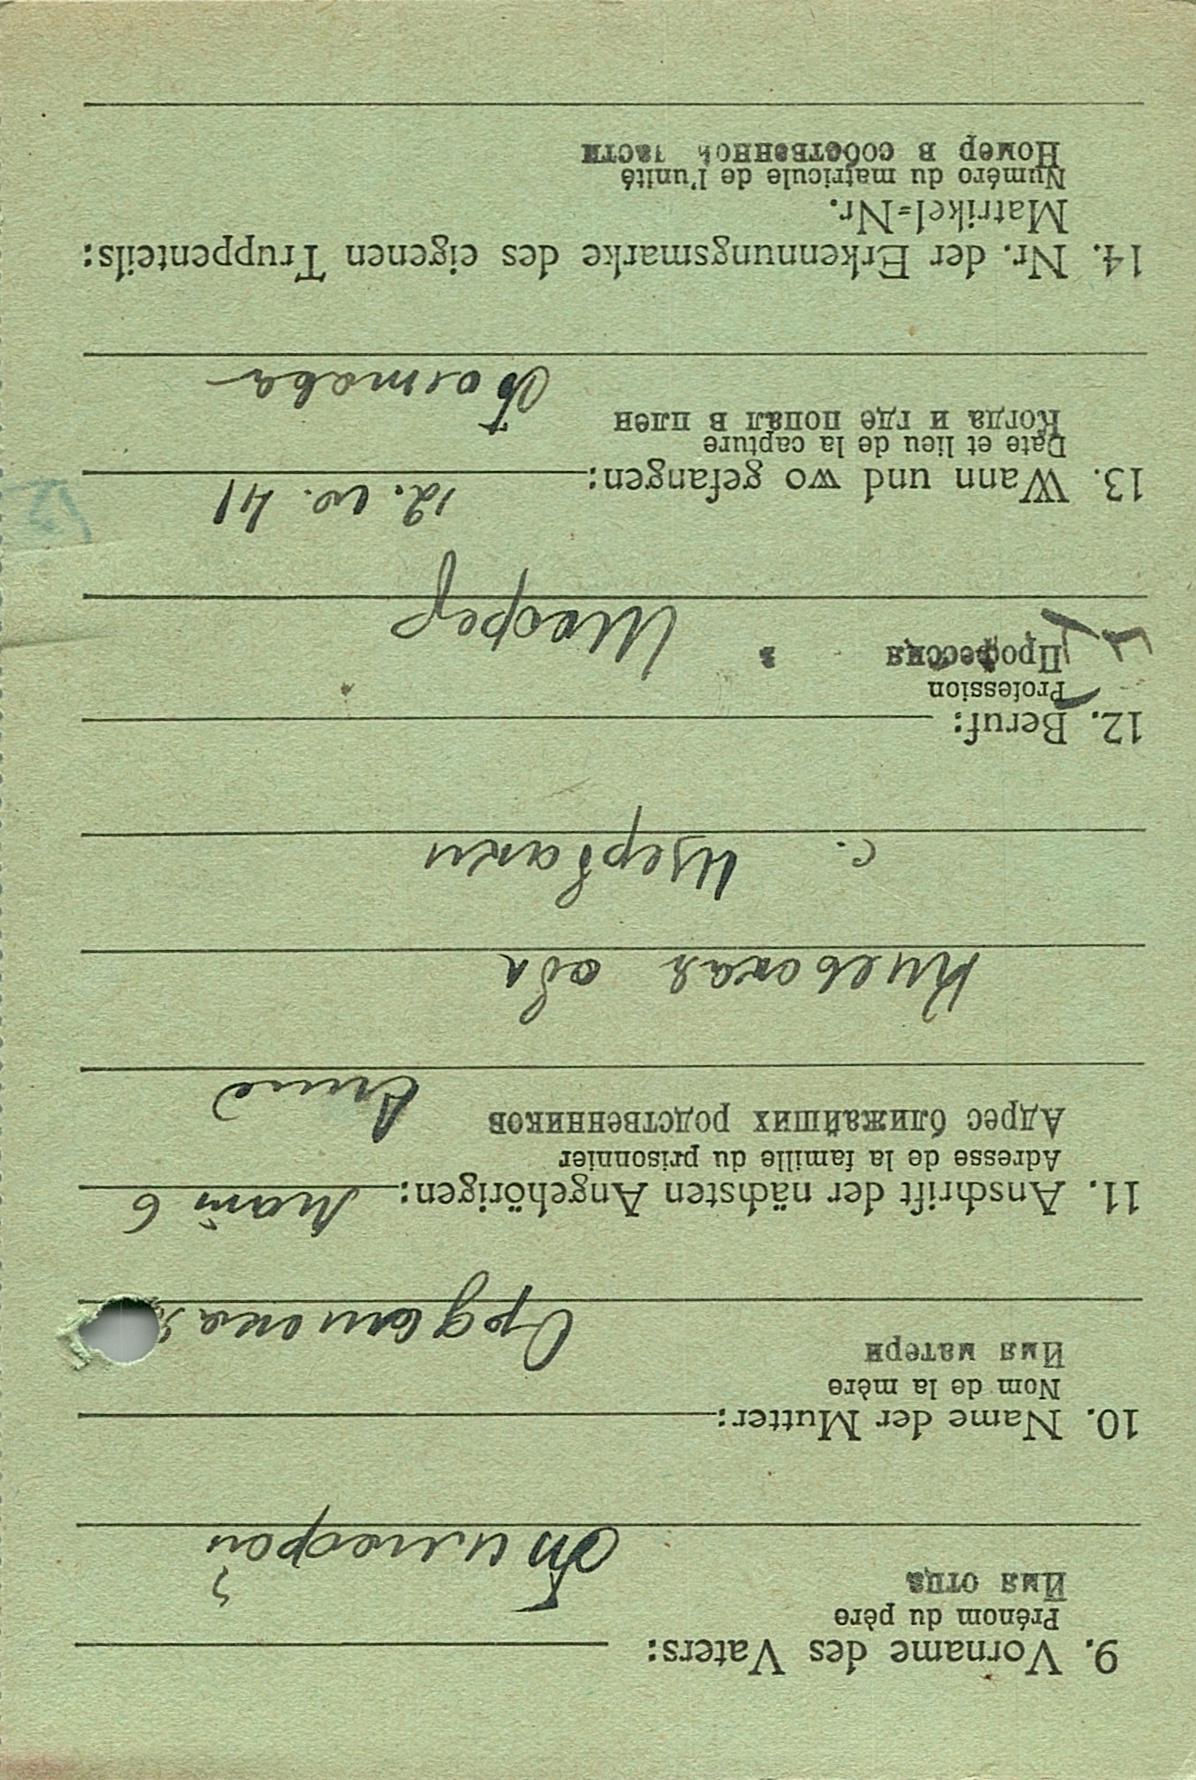 9. Vorname des Vaters:
Prénom du père
Имя отца
Тимофей
10. Name der Mutter:
Nom de la mère
Имя матери
11. Anschrift der nächsten Angehörigen:
Adresse de la famille du prisonnier
Адрес ближайших родственников
Киевская обл
с. Щербаки
12. Beruf:
Profession
Профессия
Шофер
13. Wann und wo gefangen: 12. 10. 41
Date et lieu de la capture
Когда и где попал в плен
14. Nr. der Erkennungsmarke des eigenen Truppenteils:
Matrikel=Nr.
Numéro du matricule de l'unité
Номер в собственной части